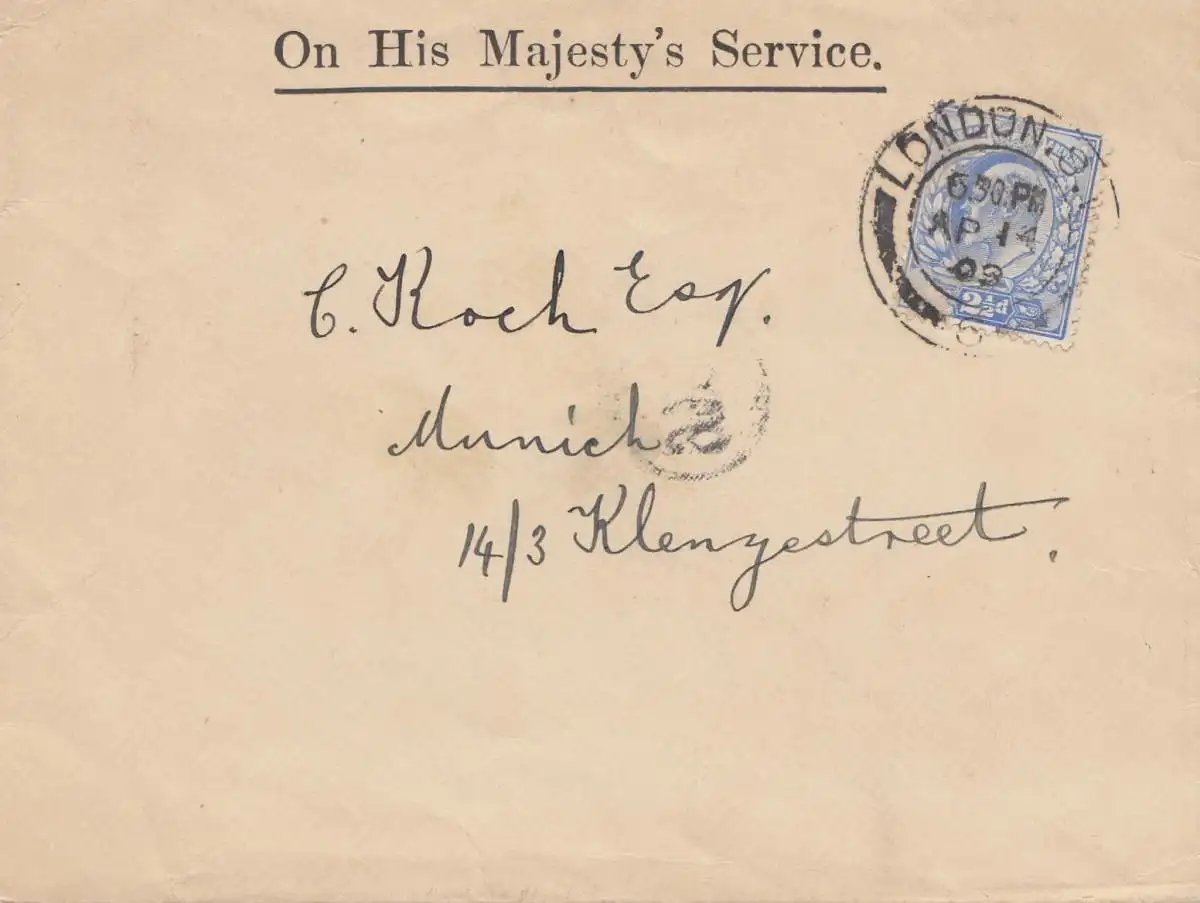 On His Majesty's Service.
LONDON. S.
6.30 PM
AP 14
03
2½d
C. Koch Esq.
Munich
S
14/3 Klenzestreet.